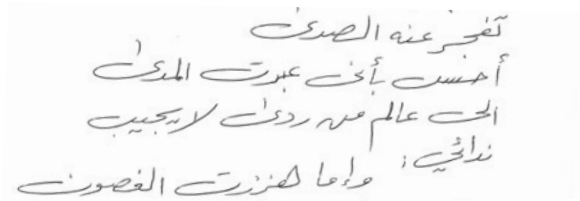 تفجر عنه الصدى
أحسن بأنى عبرت المدى
الى عالم من ردى لا يجيب
ندائي؛
وإما هززت الغصون